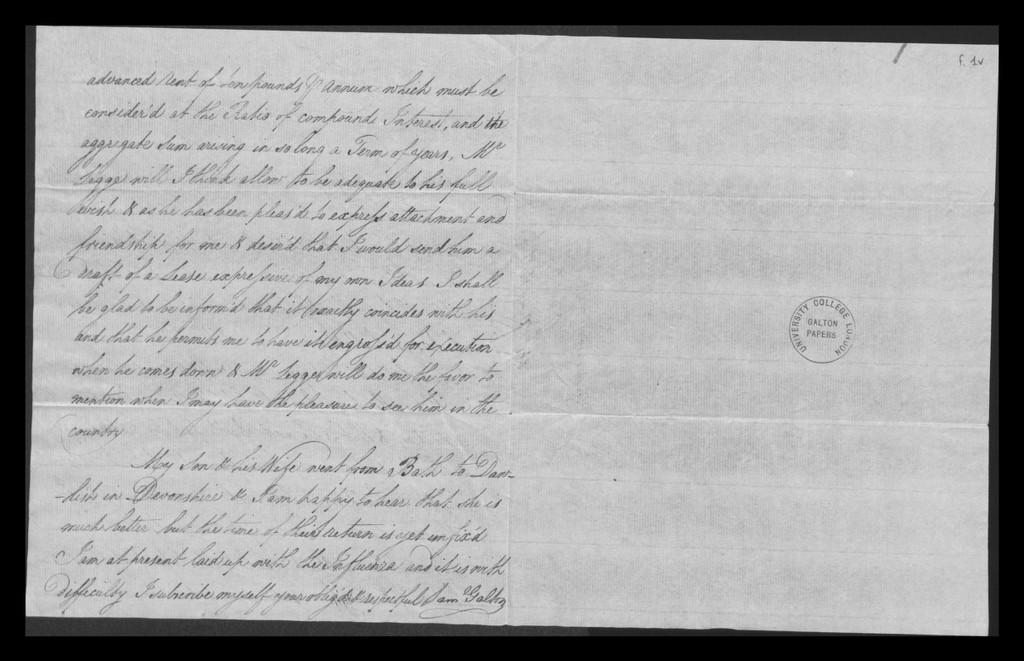 f. 1v
advanced rent of ten pounds P Annum which must be
consider'd at the Ratio of compound Interest, and the
aggregate sum arising in so long a Term of years, Mr
Legge will I think allow to be adequate to his full
wish & as he has been pleas'd to express attachment and
friendship for me & desir'd that I would send him a
Draft of a Lease expressive of my own Ideas I shall
be glad to be inform'd that it exactly coincides with his
and that he permits me to have it engross'd for execution
when he comes down & Mr Legge will do me the favor to
mention when I may have the pleasure to see him in the
country
My Son & his Wife went from Bath to Daw-
-lish in Devonshire & I am happy to hear that she is
much better but the time of their return is yet unfix'd
I am at present laid up with the Influenza and it is with
Difficulty I subscribe myself your oblig'd & respectful Sam Galton
UNIVERSITY COLLEGE LONDON
GALTON
PAPERS